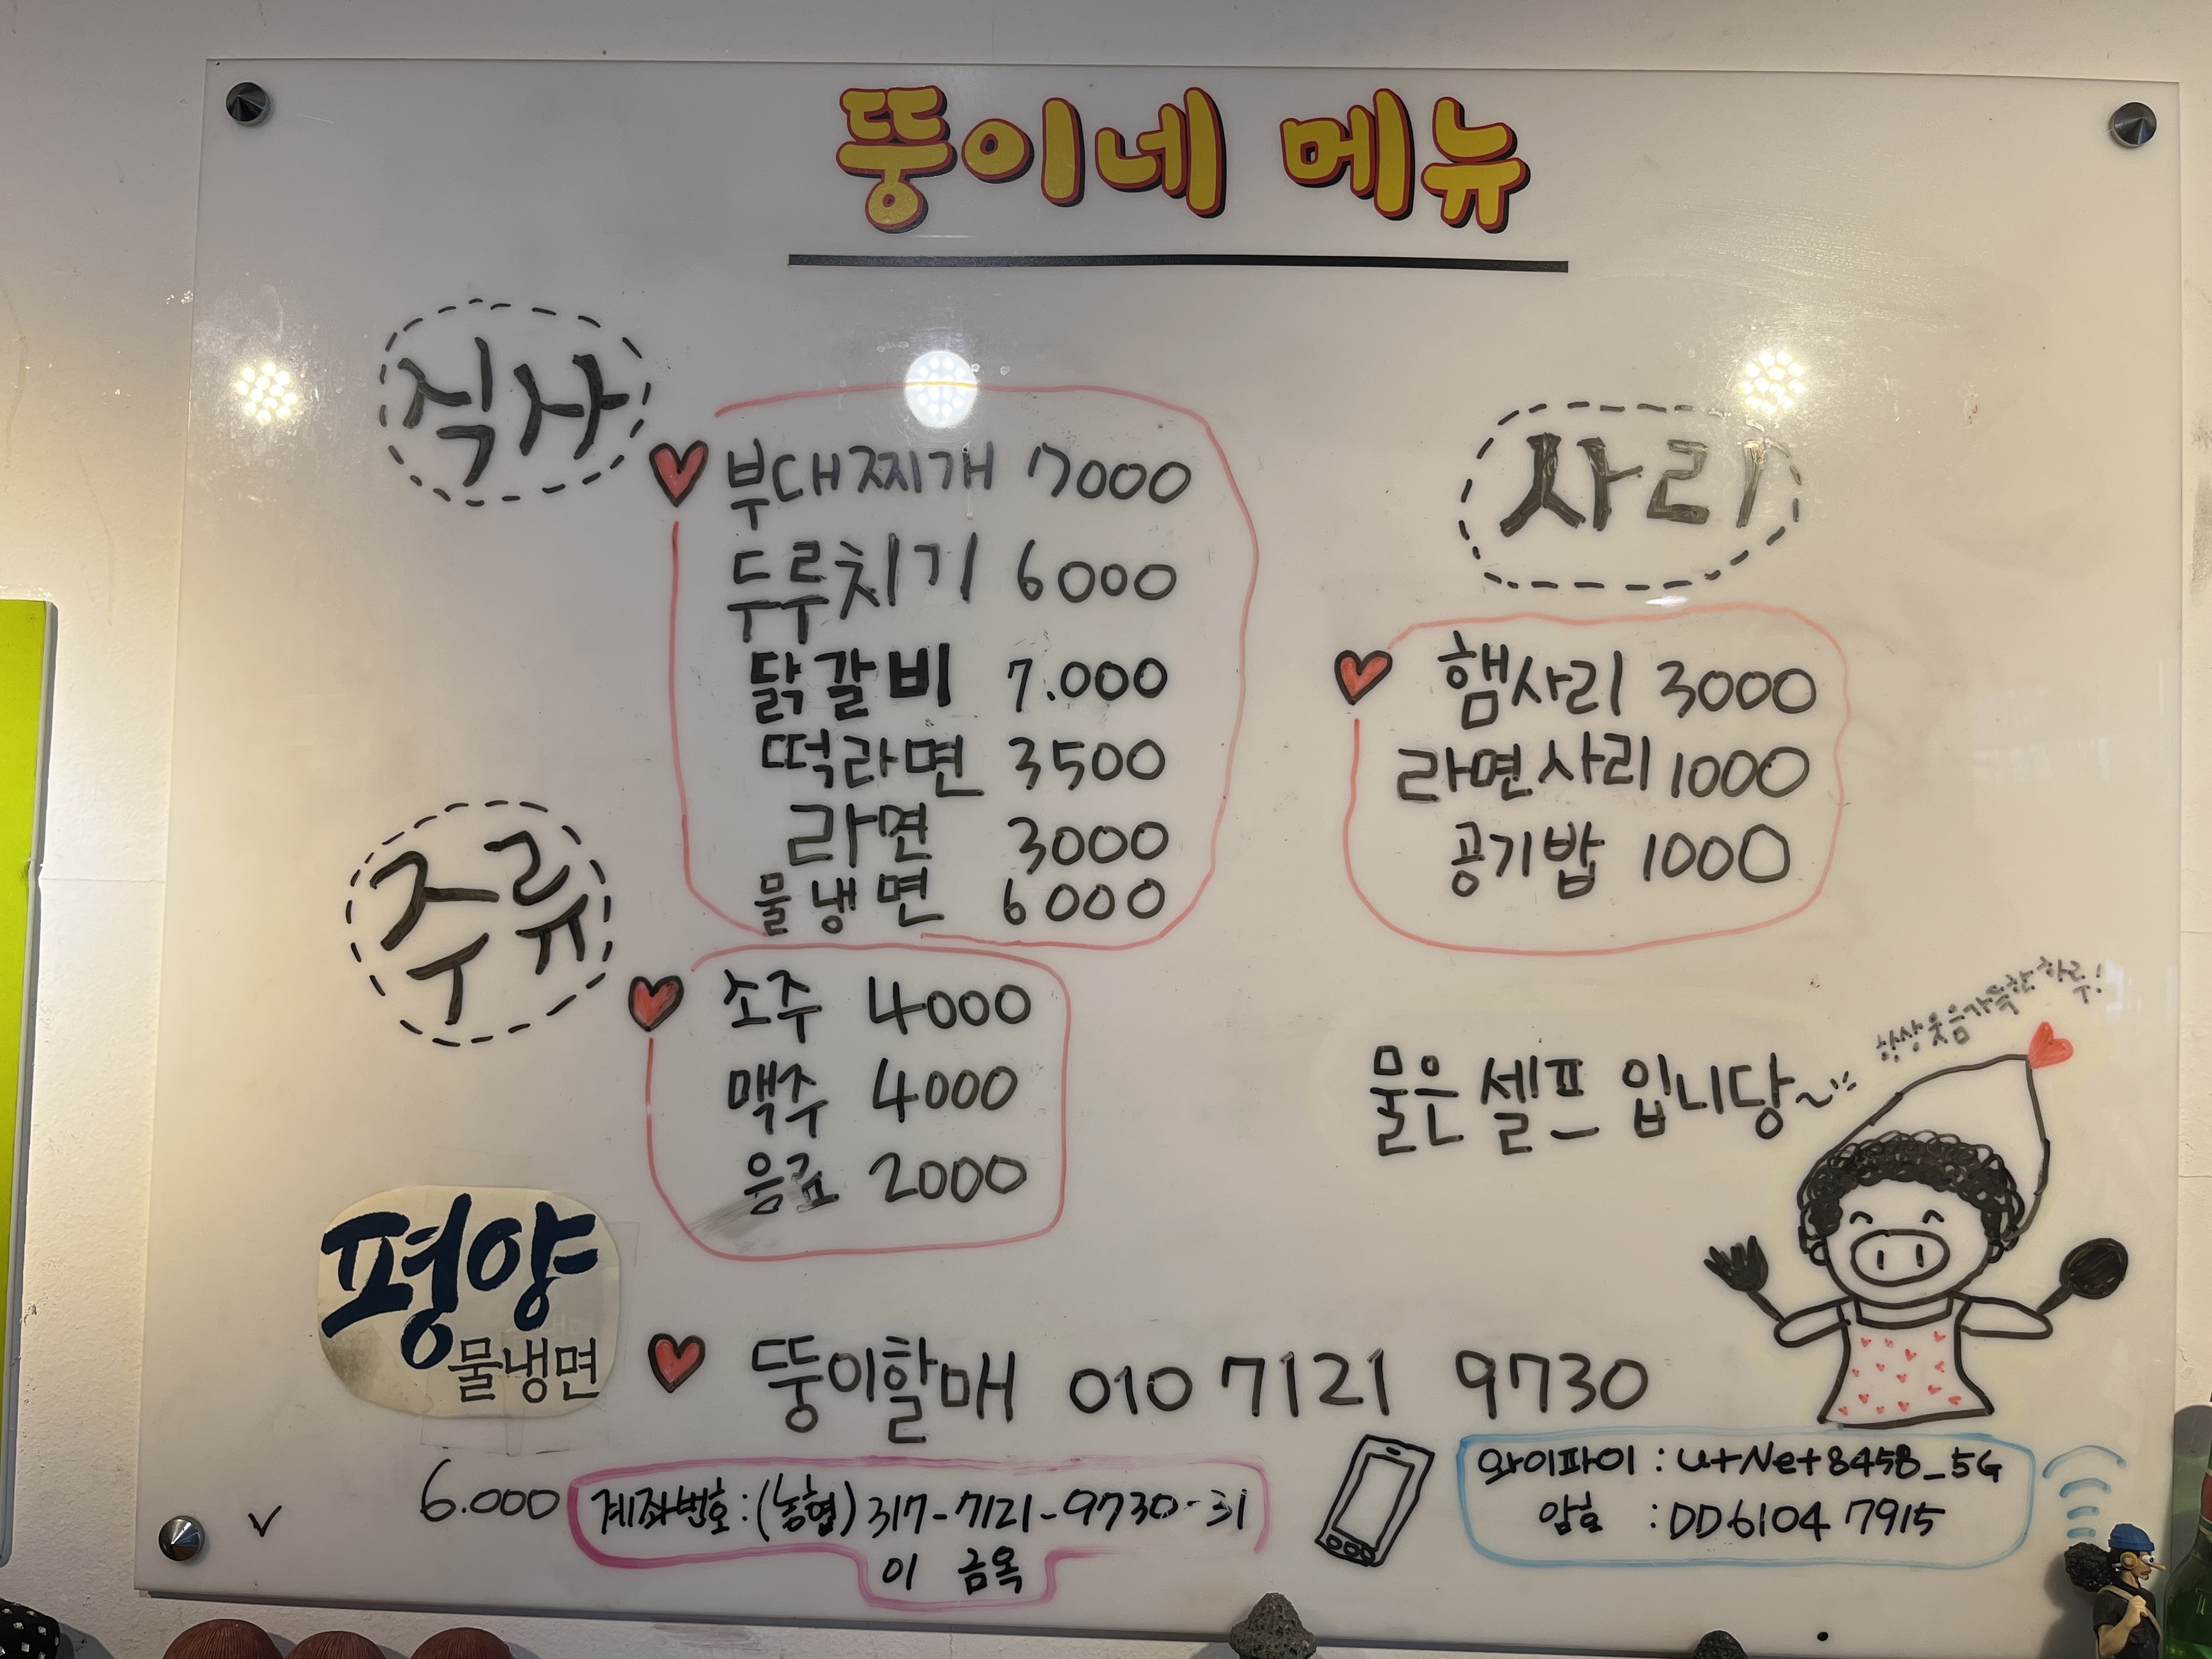 뚱이네 메뉴
식사
부대찌개 7000
두루치기 6000
닭갈비 7.000
떡라면 3500
라면 3000
물냉면 6000
사리
햄사리 3000
라면사리 1000
공기밥 1000
주류
소주 4000
맥주 4000
음료 2000
항상 웃음가득한 하루!
물은 셀프 입니당~
평양
물냉면
6.000
뚱이할매 010 7121 9730
계좌번호:(농협) 317-7121-9730-31
이 금옥
와이파이 : U+Net8458_5G
암호 : DD61047915